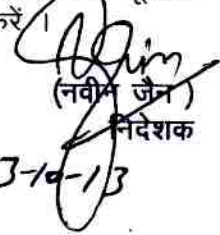 करें ।
(नवीन जैन)
निदेशक
3-10-13